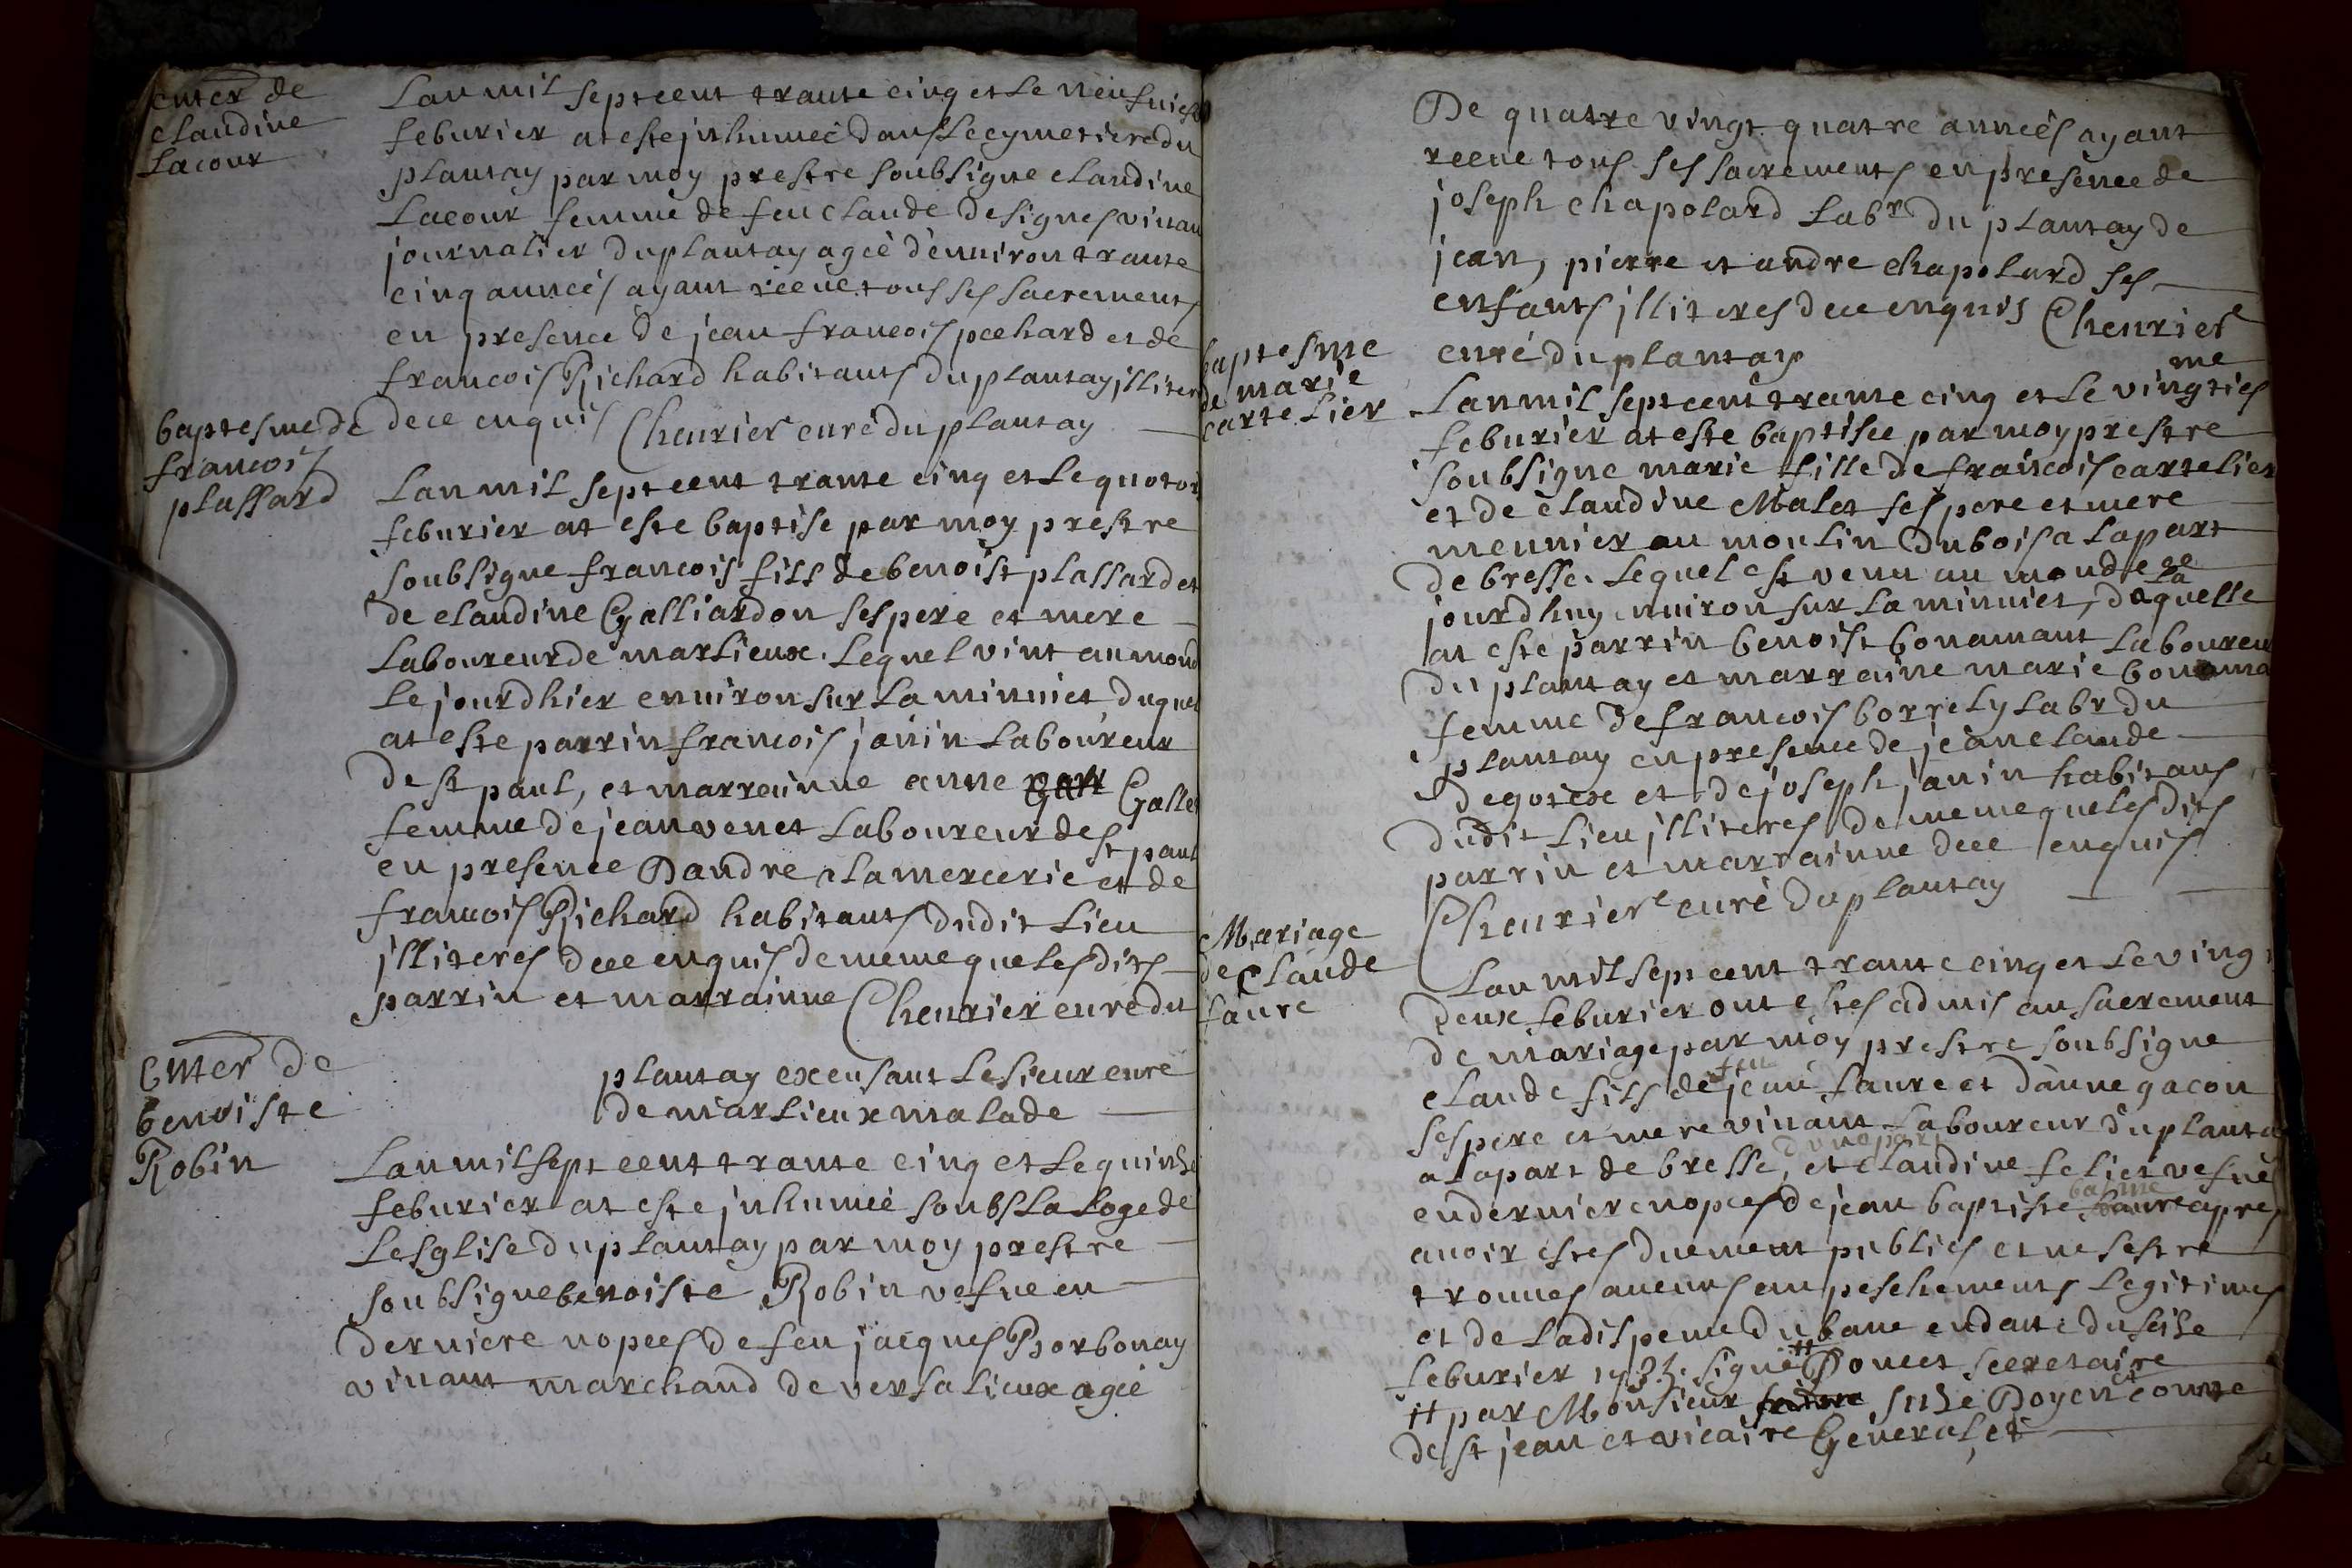 enter de
claudine
Lacour
Lan mil sept cent trante cinq et le neufuies
feburier at este jnhumeé dans le cymetiere du
plantay par moy prestre soubsigne claudine
Lacour femme de feu claude designes viuan
journalier du plantay ageé denuiron trante
cinq anneés ayant receue tous ses sacrements
en presence de jean francois pechard et de
francois Richard habitants du plantay illiter
de ce enquis Cheurier curé du plantay
baptesme de
francois
plassard
Lan mil sept cent trante cinq et le quotor
feburier at este baptise par moy prestre
soubsigne francois fils de benoist plassard et
de claudine Galliardon ses pere et mere
Laboureur de marlieux. Lequel vint au mond
le jourdhier enuiron sur la minuiet, duquel
at este parrin francois janin Laboureur
de st paul, et marrainne anne Galle
femme de jean venet Laboureur de st paul
en presence Dandre Lamercerie et de
francois Richard habitants dudit Lieu
jlliteres de ce enquis de meme que lesdits
parrin et marrainne Cheurier curé du
plantay excusant le sieur curé
de marlieux malade
Enter de
benoiste
Robin
Lan mil sept cent trante cinq et le quinse
feburier at este jnhumeé soubs la loge de
Lesglise du plantay par moy prestre
soubsigne benoiste Robin vefue en
derniere nopces de feu jacques Borbonay
viuant marchand de versalieux ageé
De quatre vingt quatre anneés ayant
receue tous ses sacrements en presence de
joseph chapolard Labr du plantay de
jean, pierre et andre chapolard ses
enfants jlliteres de ce enquis Cheurier
curé du plantay
baptesme
de marie
cartelier
me
Lan mil sept cent trante cinq et le vingties
feburier at este baptisee par moy prestre
soubsigne marie fille de francois cartelier
et de claudine Malet ses pere et mere
meunier au moulin du bois a la part
de bresse. Lequel est venu au monde ce
jourdhuy enuiron sur la minuiet, de la quelle
at este parrin benoist bonamant Laboureu
du plantay et marraine marie bonama
femme de francois borrely Labr du
plantay en presence de jean claude
degoiex et de joseph janin habitans
dudit Lieu jlliteres de meme que lesdits
parrin et marrainne de ce enquis
Cheurier curé du plantay
Mariage
de Claude
faure
Lan mil sept cent trante cinq et le ving
deux feburier ont estes admis au sacrement
de mariage par moy prestre soubsigne
claude fils de feu jean faure et danne gacon
ses pere et mere viuant Laboureur du planta
a la part de bresse, d'une part et claudine feliet vefue
en derniere nopces de jean baptiste apres
auoir estes duement publiés et ne sestre
trouues aucuns empeschements legitimes
et de la dispence du banc en datte du seise
feburier 1735. signé # Doncet secretaire
# par Monsieur Doyen et comte
de st jean et vicaire General, et